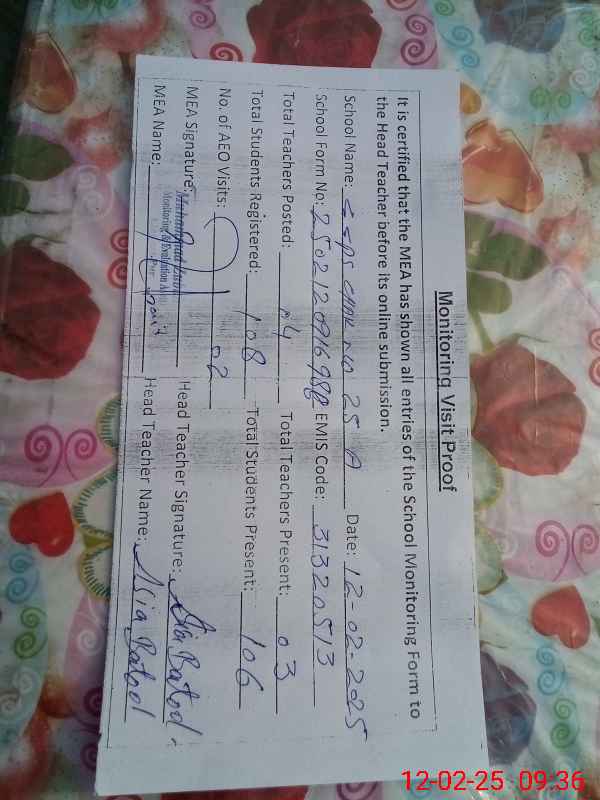 Monitoring Visit Proof
It is certified that the MEA has shown all entries of the School Monitoring Form to
the Head Teacher before its online submission.
School Name: GGPS CHAK NO 25 A Date: 12-02-2025
School Form No: EMIS Code: 31320513
Total Teachers Posted: 04 Total Teachers Present: 03
Total Students Registered: 108 Total Students Present: 106
No. of AEO Visits: 02
MEA Signature: Head Teacher Signature: Asia Batool
Muhammad
Monitoring & Evaluation
MEA Name: Head Teacher Name: Asia Batool
12-02-25 09:36